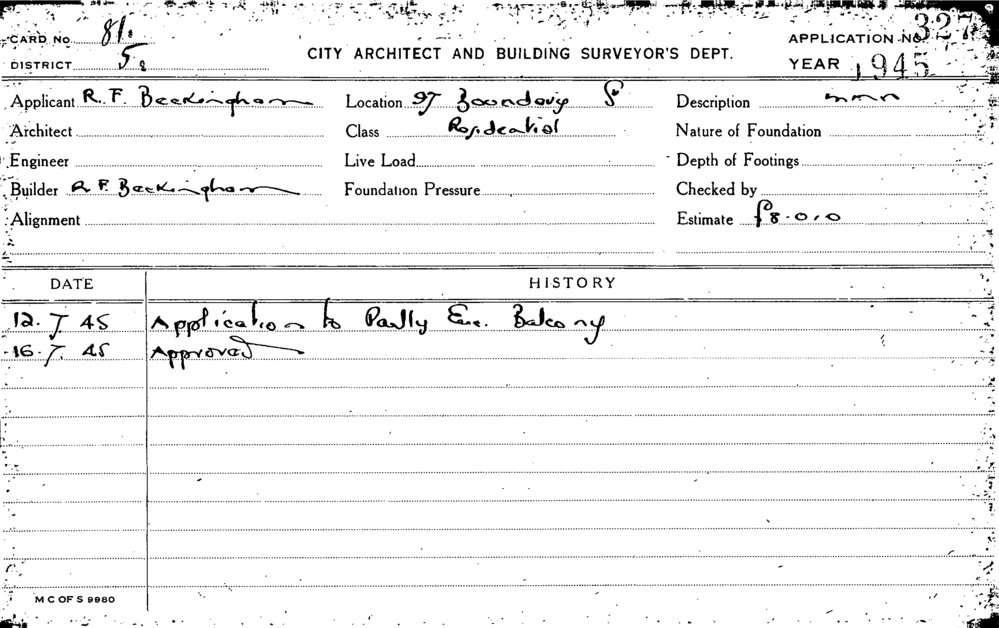 CARD NO. 81. CITY ARCHITECT AND BUILDING SURVEYOR'S DEPT. APPLICATION No. 327
DISTRICT 5. YEAR 1945
Applicant R. F. Beckingham Location 97 Boundary St Description
Architect Class Residential Nature of Foundation
Engineer Live Load Depth of Footings
Builder R. F. Beckingham Foundation Pressure Checked by
Alignment Estimate £8.0.0
DATE HISTORY
12. 7 45 Application to Partly Enc. Balcony
16. 7. 45 Approved
M C OF S 9980